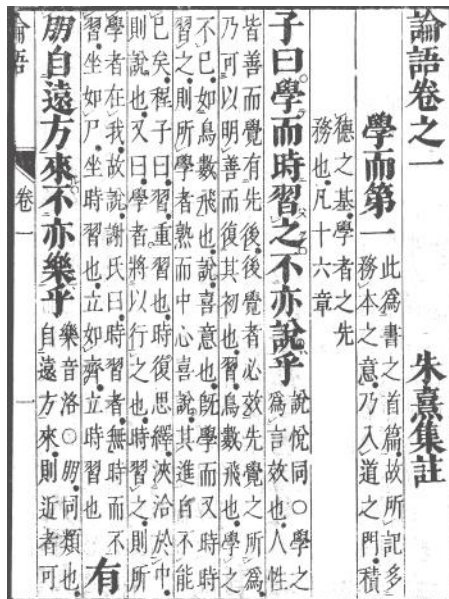 論語卷之一　朱熹集註
學而第一
此爲書之首篇故所記多
務本之意乃入道之門積
德之基學者之先
務也凡十六章
子曰學而時習之不亦說乎
說悅同○學之
爲言效也人性
皆善而覺有先後後覺者必效先覺之所爲
乃可以明善而復其初也習鳥數飛也學之
不已如鳥數飛也說喜意也既學而又時時
習之則所學者熟而中心喜說其進自不能
已矣程子曰習重習也時復思繹浹洽於中
則說也又曰學者將以行之也時習之則所
學者在我故說謝氏曰時習者無時而不
習坐如尸坐時習也立如齊立時習也
有
朋自遠方來不亦樂乎
樂音洛○朋同類也
自遠方來則近者可
論語　卷一　一